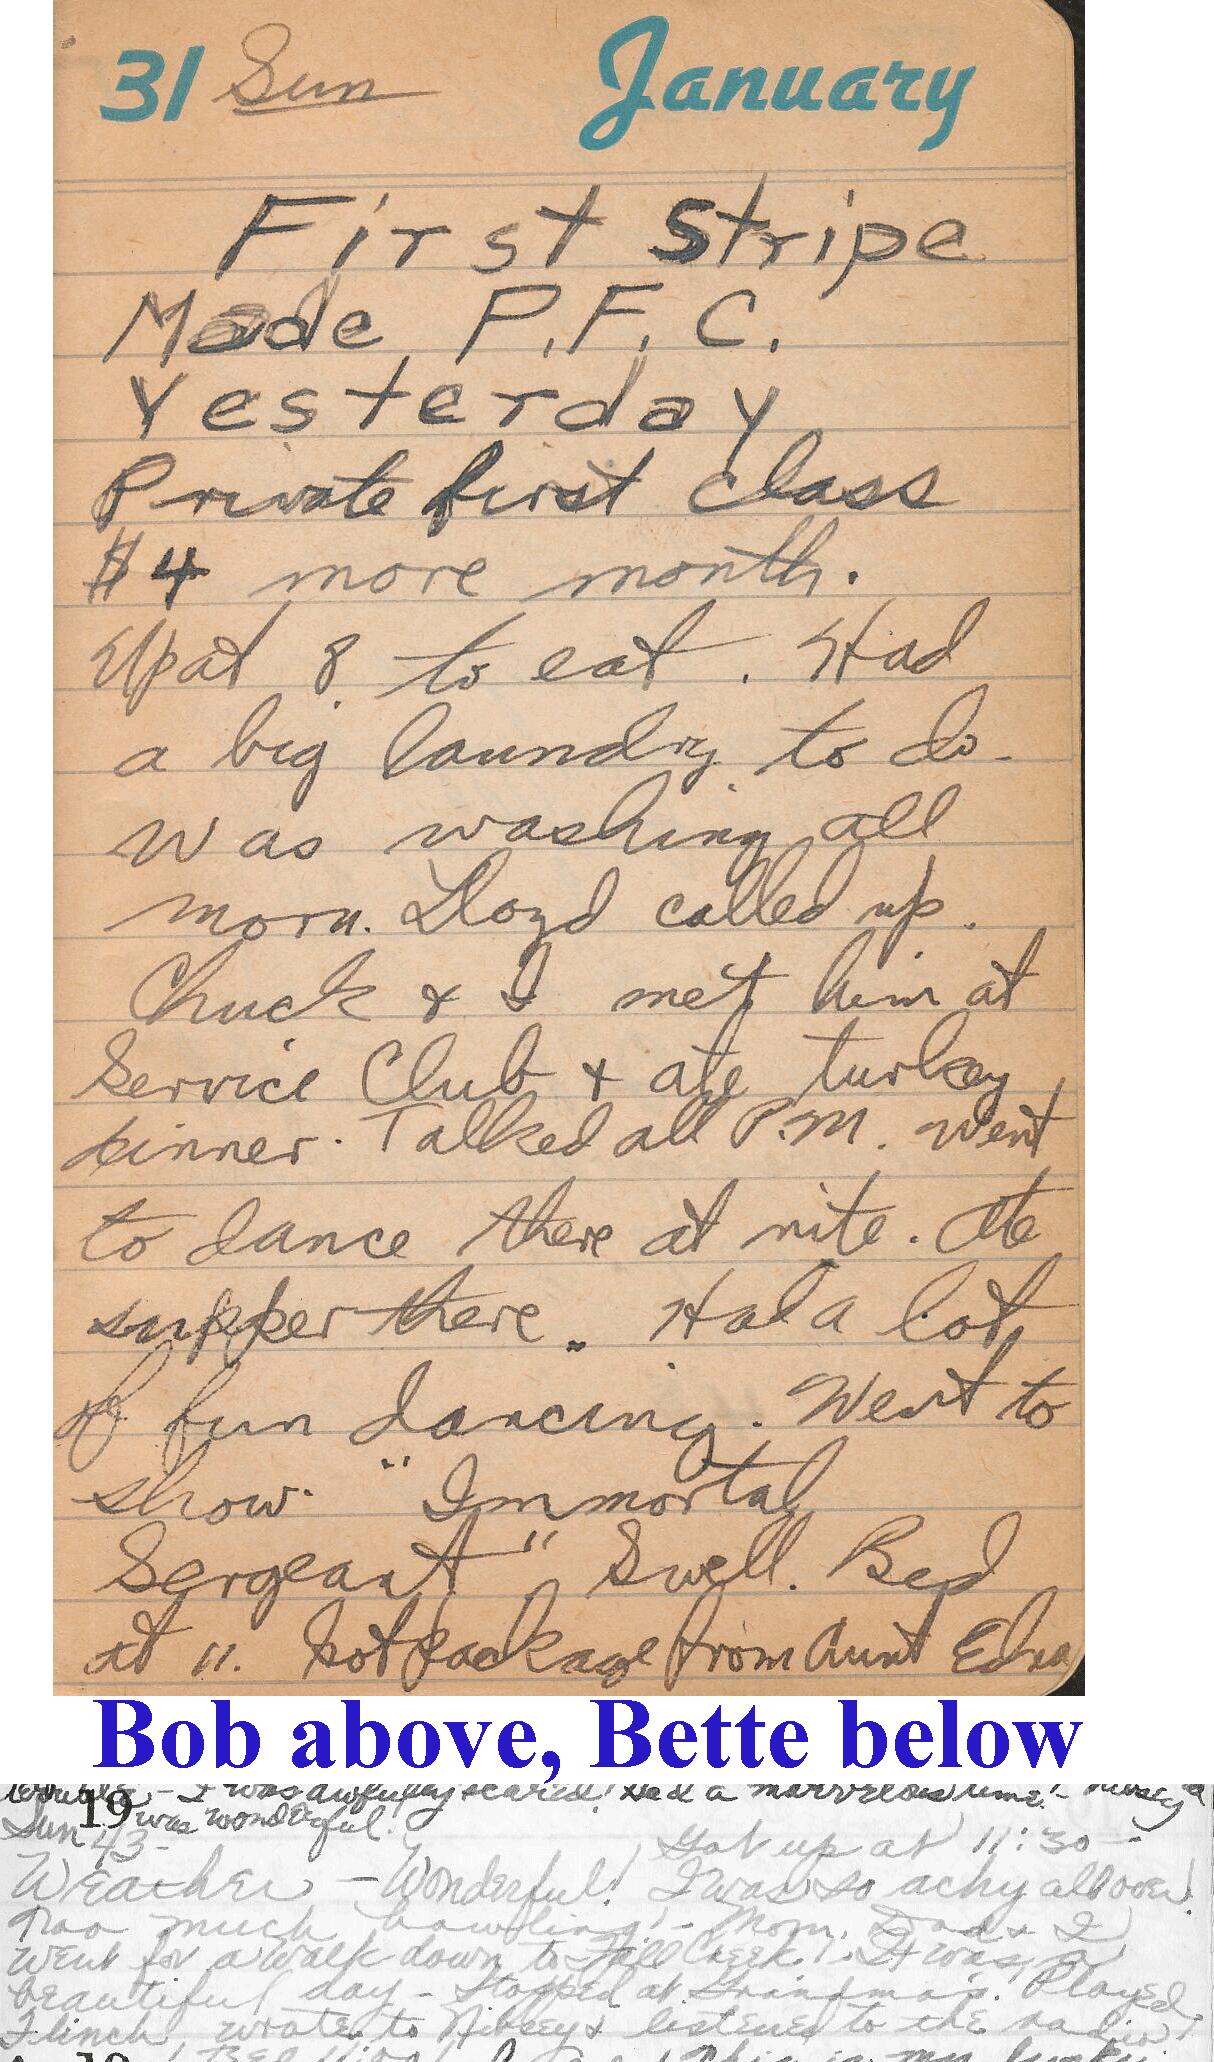 31 Sun January
First Stripe
Made P.F.C.
Yesterday
Private first class
$4 more month.
Up at 8 to eat. Had
a big laundry to do.
Was washing all
morn. Lloyd called up.
Chuck & I met him at
Service Club & ate turkey
dinner. Talked all P.M. Went
to dance there at nite. Ate
supper there. Had a lot
of fun dancing. Went to
show. "Immortal
Sergeant" Swell. Bed
at 11. Got package from Aunt Edna
Bob above, Bette below
- I was awfully scared! Had a marvelous time! -
19 was wonderful!
Sun 43- Got up at 11:30 -
Weather - Wonderful! I was so achy all over!
Too much bowling! - Mom, Dad & I
went for a walk down to Fall Creek! It was a
beautiful day - Stopped at Grandma's. Played
Flinch, wrote to & listened to the radio!